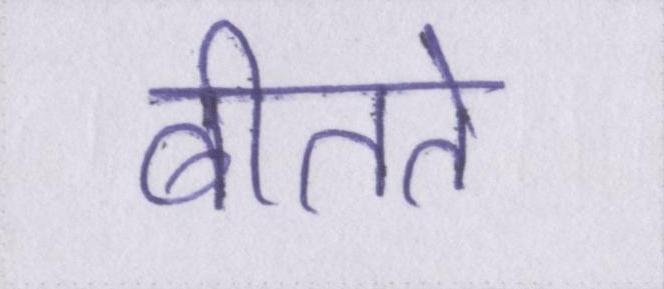 बीतते